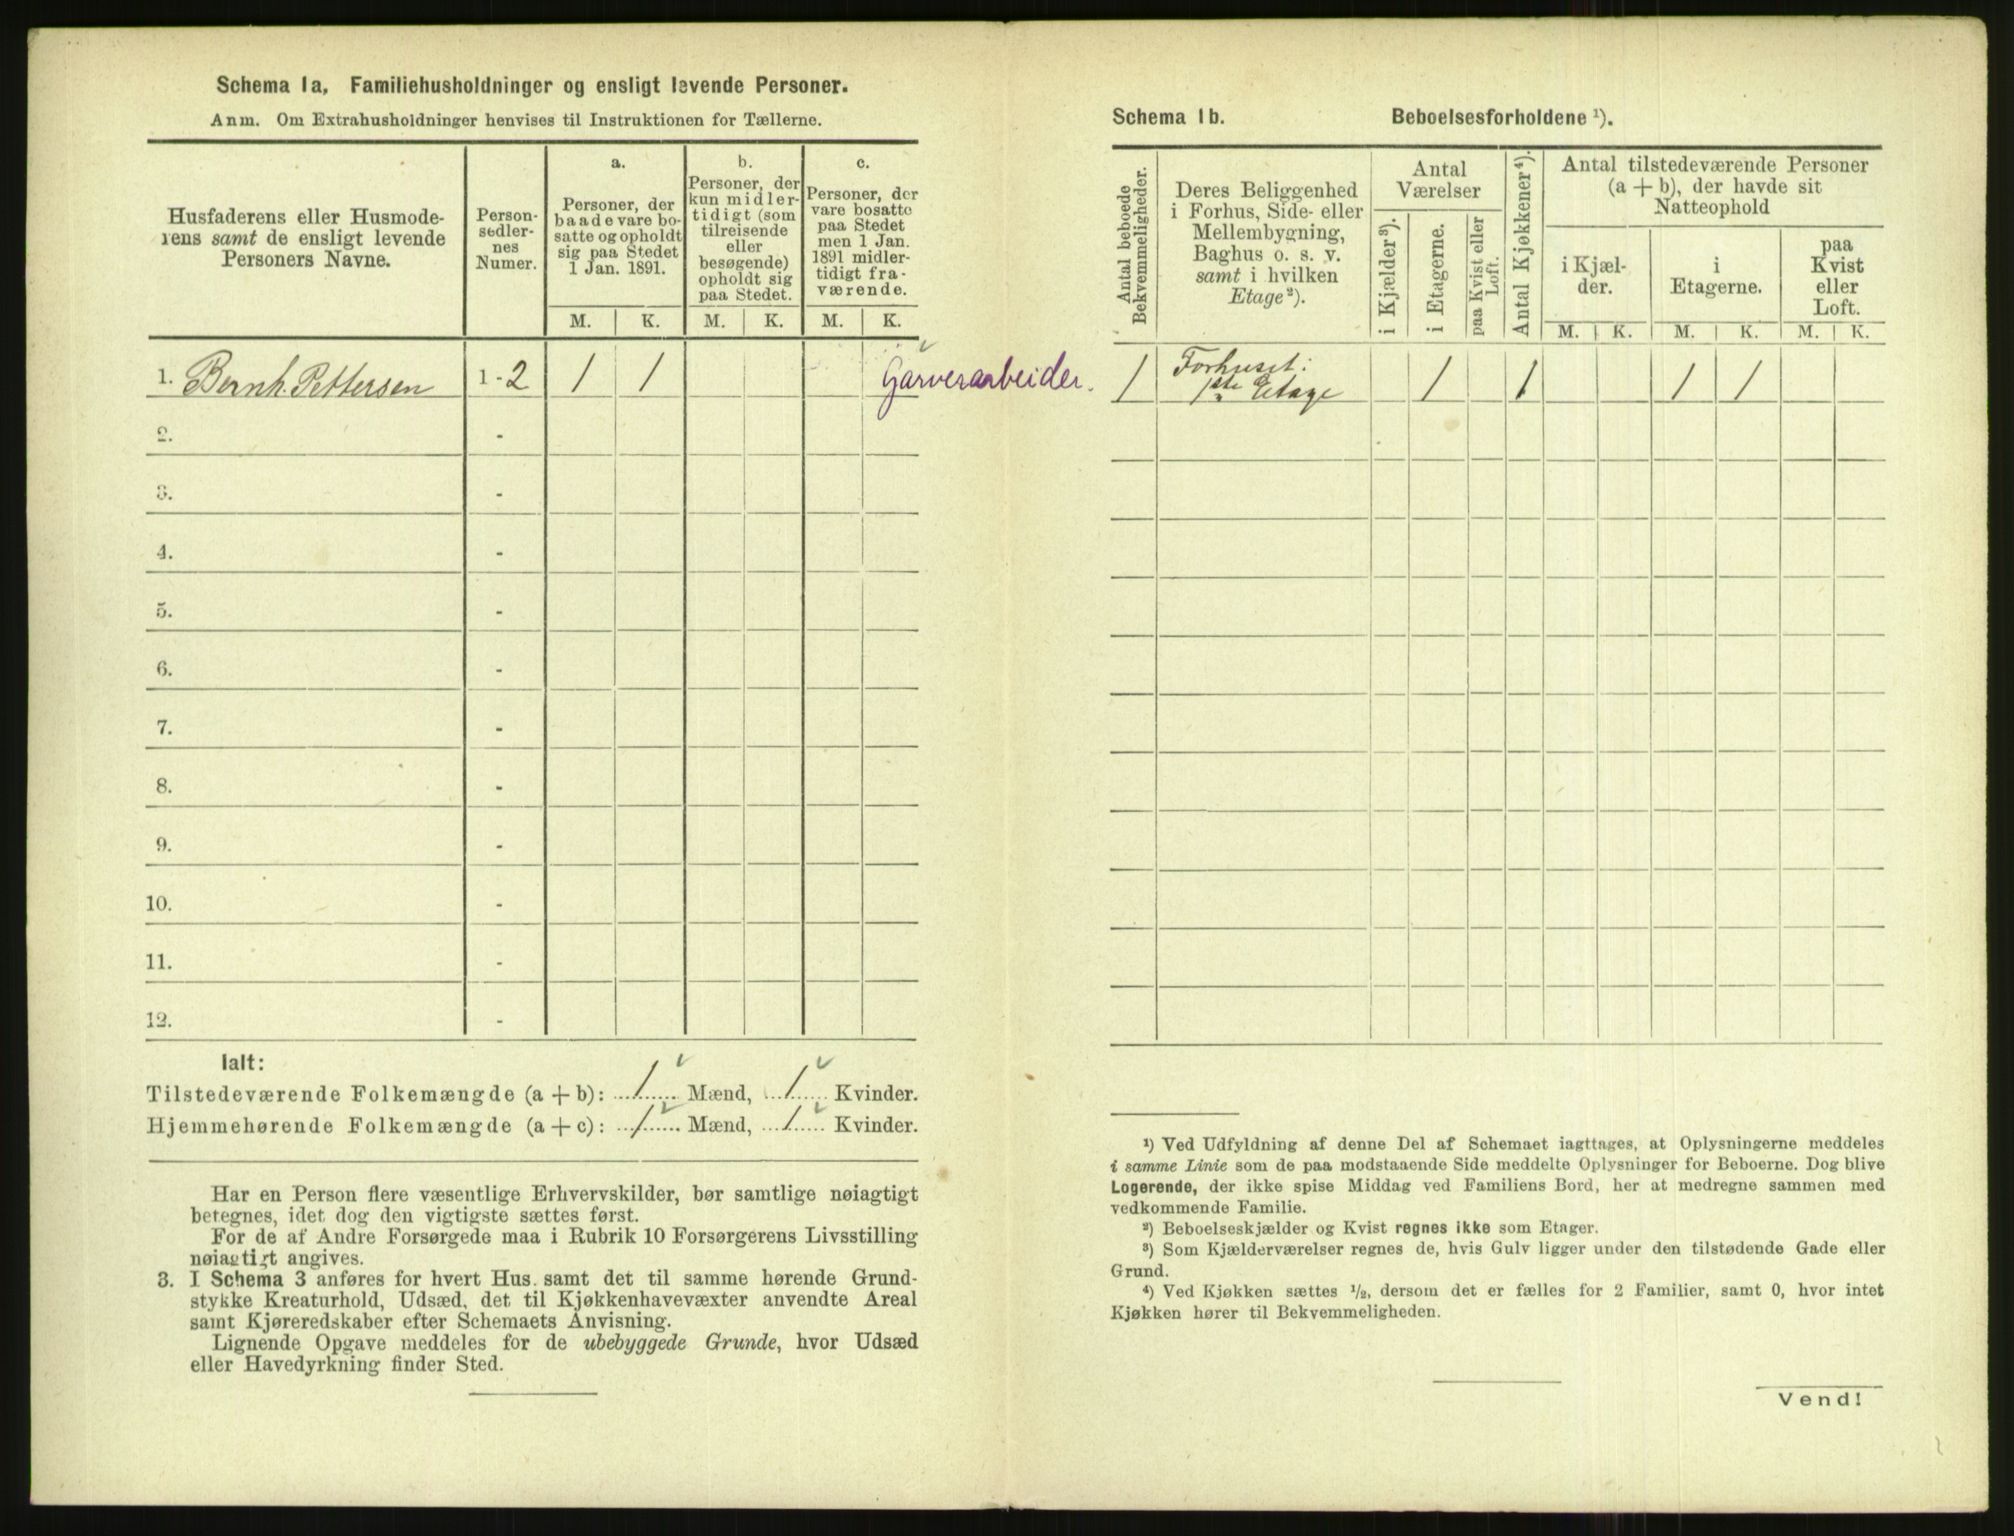 Schema 1a, Familiehusholdninger og ensligt levende Personer.
Anm. Om Extrahusholdninger henvises til Instruktionen for Tællerne.
Husfaderens eller Husmode-
rens samt de ensligt levende
Personers Navne.
Person-
sedler-
nes
Numer.
a.
Personer, der
baade vare bo-
satte og opholdt
sig paa Stedet
1 Jan. 1891.
b.
Personer, der
kun midler-
tidigt (som
tilreisende
eller
besøgende)
opholdt sig
paa Stedet.
c.
Personer, der
vare bosatte
paa Stedet
men 1 Jan.
1891 midler-
tidigt fra-
værende.
M. K. M. K. M. K.
1. Bernh. Pettersen 1 - 2 1 1 Garverarbeider.
2. -
3. -
4. -
5. -
6. -
7. -
8. -
9. -
10. -
11. -
12. -
Ialt:
Tilstedeværende Folkemængde (a + b): 1 Mænd, 1 Kvinder.
Hjemmehørende Folkemængde (a + c): 1 Mænd, 1 Kvinder.
Har en Person flere væsentlige Erhvervskilder, bør samtlige nøiagtigt
betegnes, idet dog den vigtigste sættes først.
For de af Andre Forsørgede maa i Rubrik 10 Forsørgerens Livsstilling
nøiagtigt angives.
3. I Schema 3 anføres for hvert Hus. samt det til samme hørende Grund-
stykke Kreaturhold, Udsæd, det til Kjøkkenhavevæxter anvendte Areal
samt Kjøreredskaber efter Schemaets Anvisning.
Lignende Opgave meddeles for de ubebyggede Grunde, hvor Udsæd
eller Havedyrkning finder Sted.
Schema 1b. Beboelsesforholdene ¹).
Antal beboede
Bekvemmeligheder.
Deres Beliggenhed
i Forhus, Side- eller
Mellembygning,
Baghus o. s. v.
samt i hvilken
Etage²).
Antal
Værelser
i Kjælder³).
i Etagerne.
paa Kvist eller
Loft.
Antal Kjøkkener⁴).
Antal tilstedeværende Personer
(a + b), der havde sit
Natteophold
i Kjæl-
der.
i
Etagerne.
paa
Kvist
eller
Loft.
M. K. M. K. M. K.
1 Forhuset: 1 1 1 1
1ste Etage
¹) Ved Udfyldning af denne Del af Schemaet iagttages, at Oplysningerne meddeles
i samme Linie som de paa modstaaende Side meddelte Oplysninger for Beboerne. Dog blive
Logerende, der ikke spise Middag ved Familiens Bord, her at medregne sammen med
vedkommende Familie.
²) Beboelseskjælder og Kvist regnes ikke som Etager.
³) Som Kjælderværelser regnes de, hvis Gulv ligger under den tilstødende Gade eller
Grund.
⁴) Ved Kjøkken sættes ¹/₂, dersom det er fælles for 2 Familier, samt 0, hvor intet
Kjøkken hører til Bekvemmeligheden.
Vend!